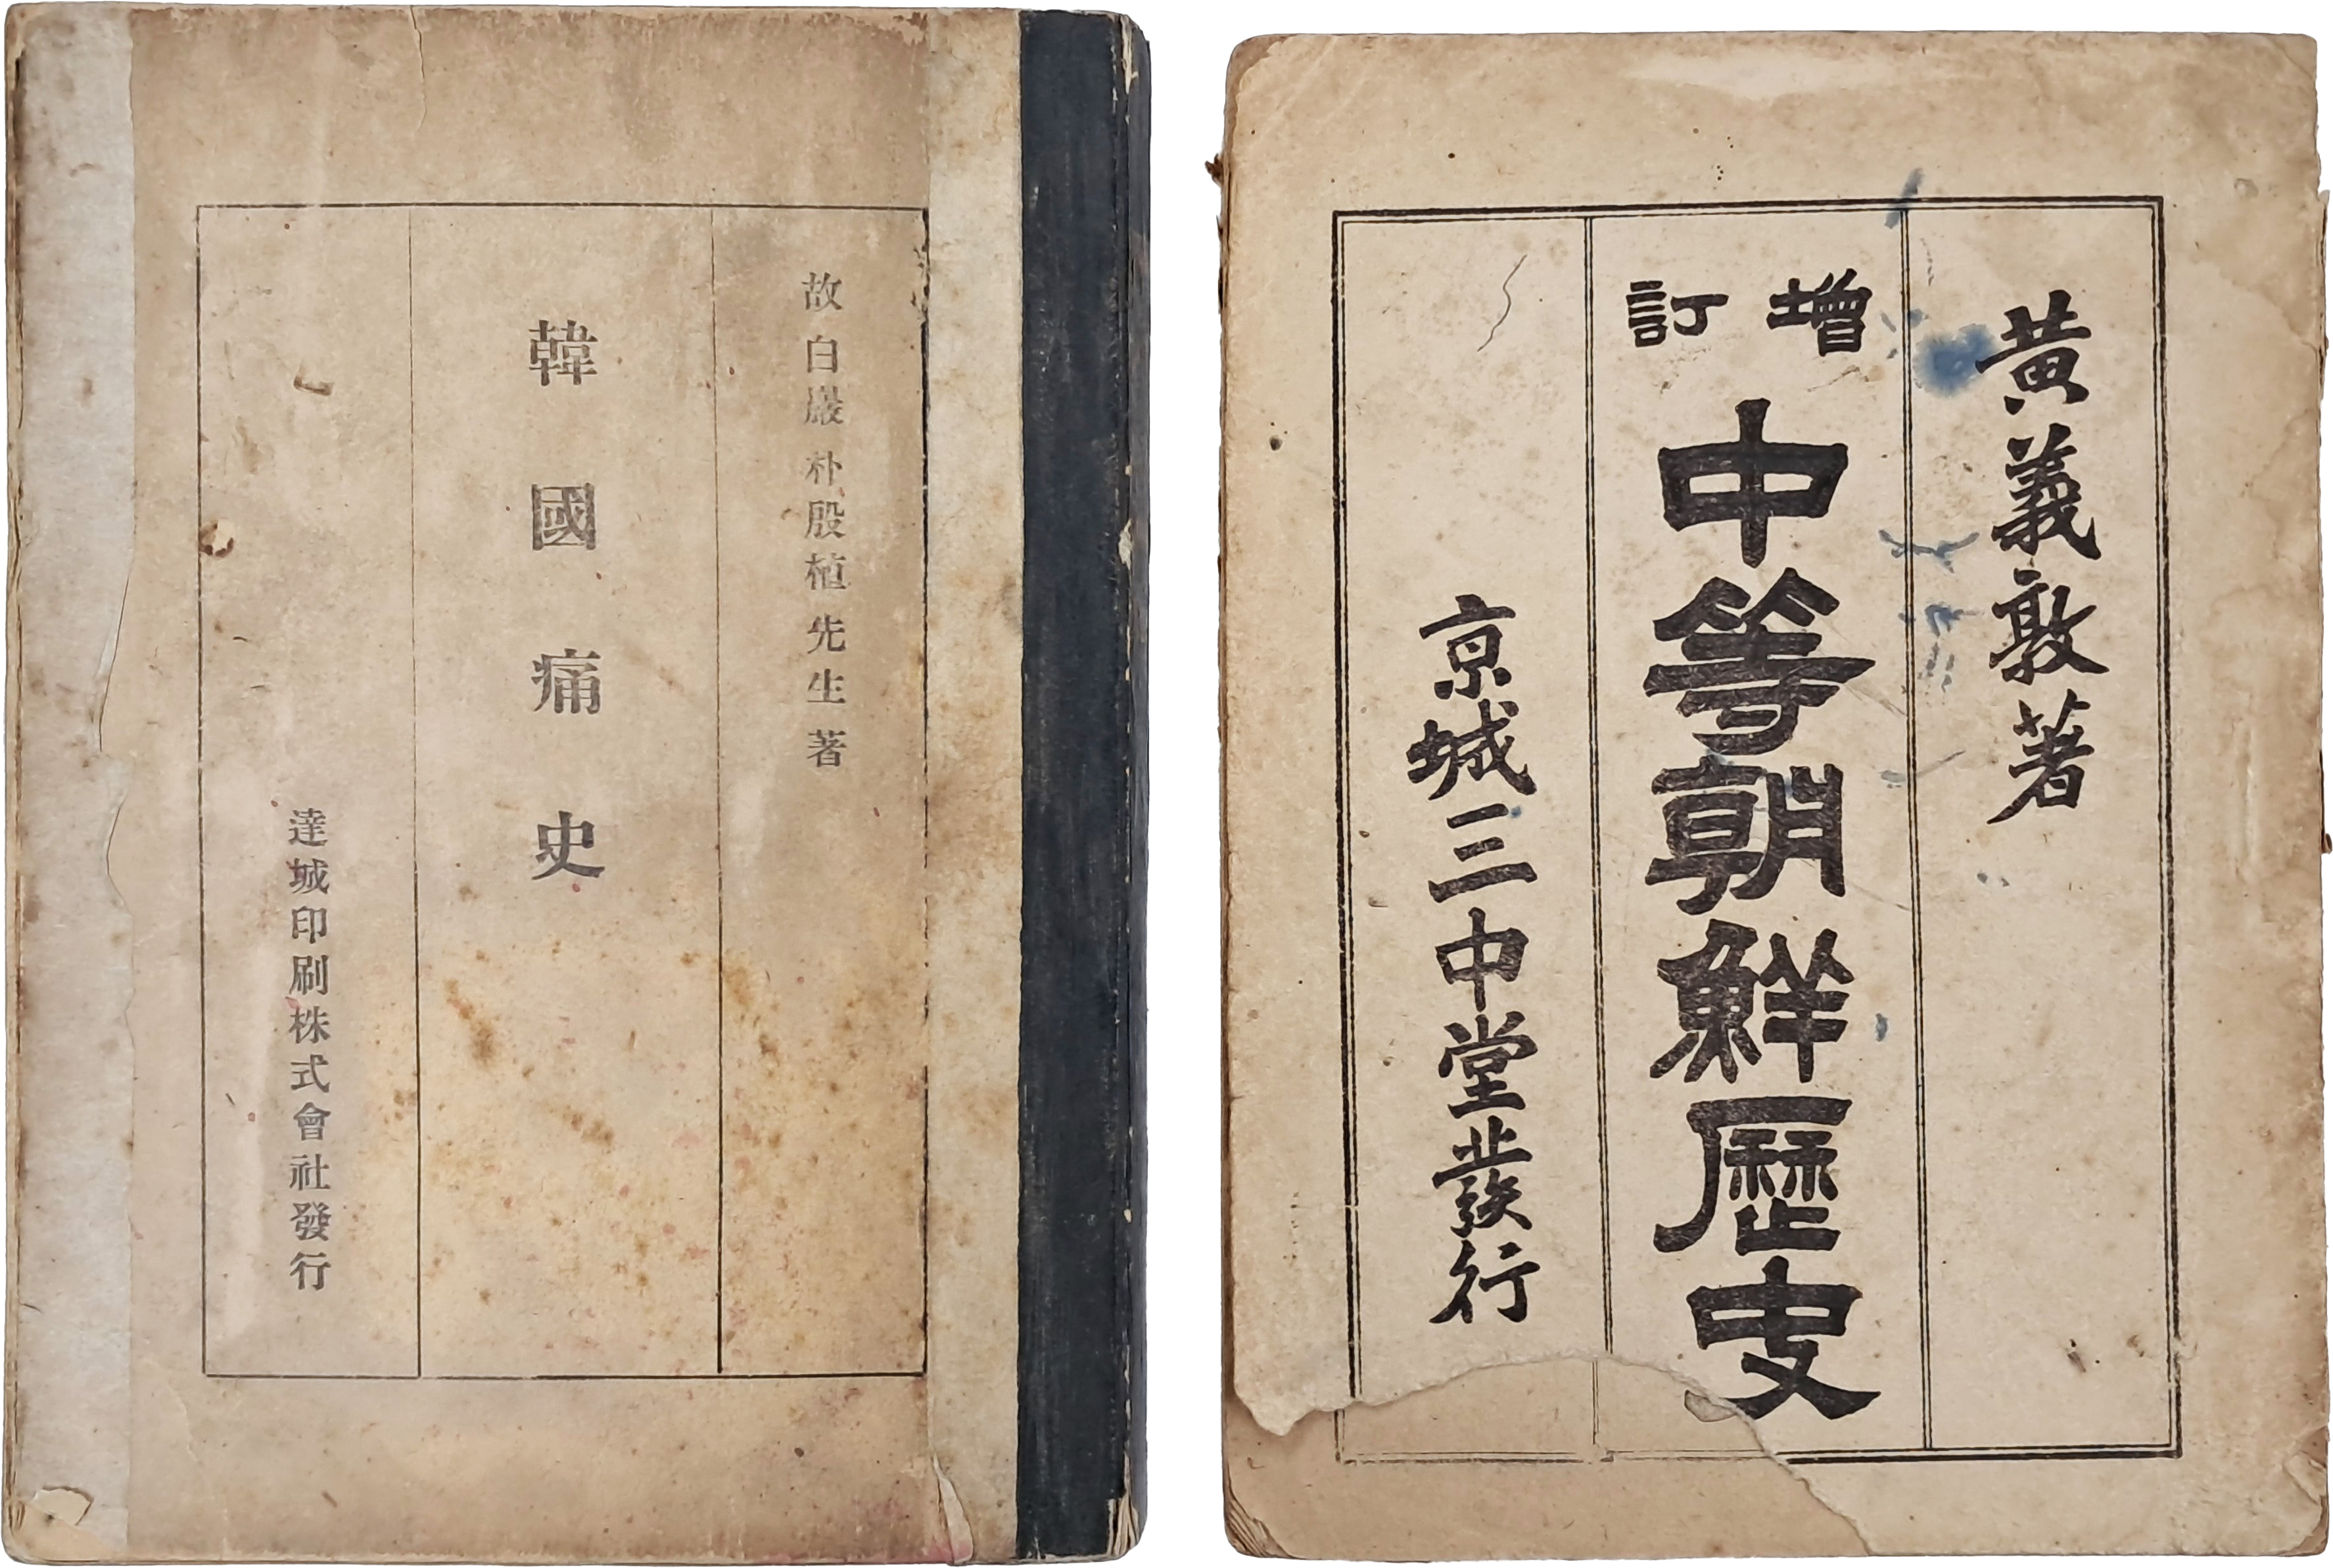 故白巖 朴殷植先生 著
韓國痛史
達城印刷株式會社發行
黃義敦著
增訂
中等朝鮮歷史
京城三中堂發行